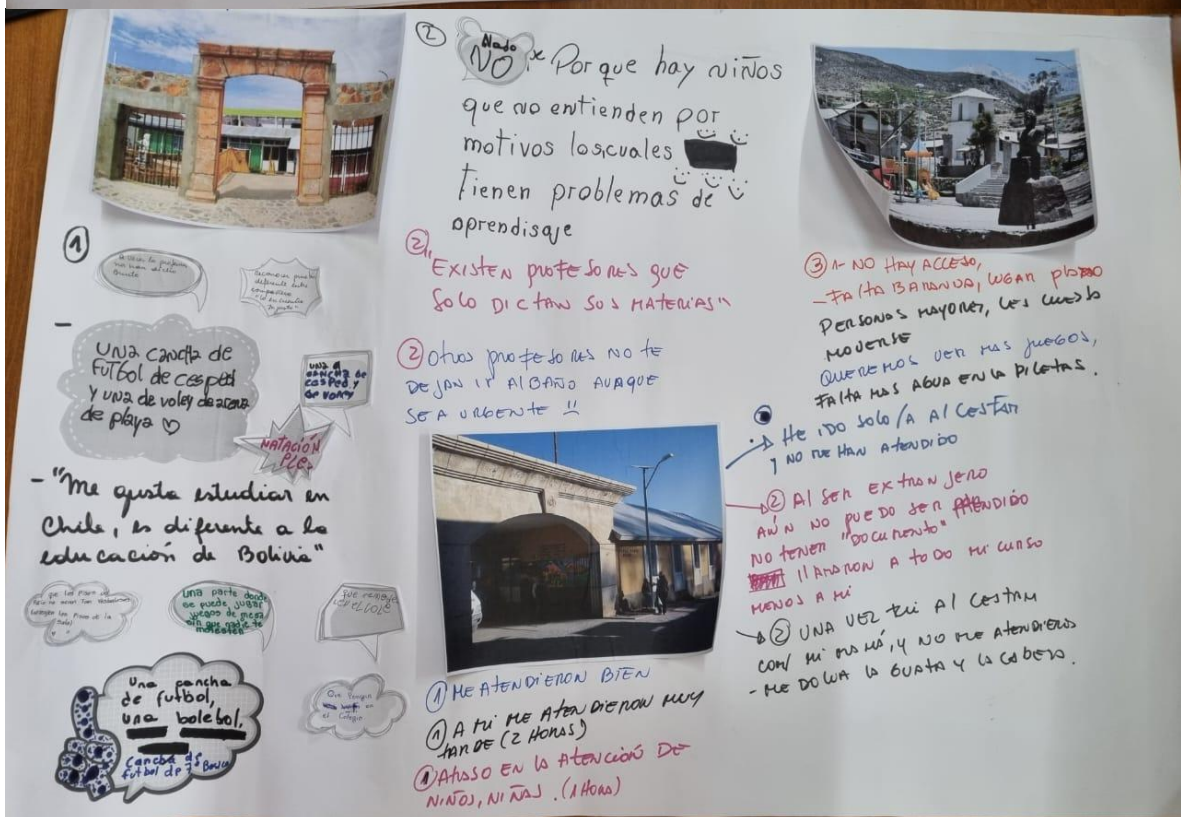 ①
UNA CANCHA DE
FUTBOL DE CESPED
Y UNA DE VOLEY DE ARENA
DE PLAYA
UNA
CANCHA DE
CESPED Y
DE VOLEY
NATACIÓN
- "Me gusta estudiar en
Chile, es diferente a la
educación de Bolivia"
Una parte donde
se puede jugar
juegos de mesa
sin que nadie te
moleste
Una cancha
de futbol,
una bolebol,
Cancha de
futbol de 7
Que tengan
en
el Colegio
②
Nado
NO
Porque hay niños
que no entienden por
motivos los cuales
tienen problemas de
aprendisaje
② "EXISTEN PROFESORES QUE
SOLO DICTAN SUS MATERIAS"
② Otros PROFESORES NO TE
DEJAN IR AL BAÑO AUNQUE
SEA URGENTE
① ME ATENDIERON BIEN
① A MI ME ATENDIERON MUY
TARDE (2 HORAS)
① ATRASO EN LA ATENCIÓN DE
NIÑOS, NIÑAS. (1 HORA)
③ 1- NO HAY ACCESO,
- FALTA BARANDA, LUGAR
PERSONAS MAYORES, LES CUESTA
MOVERSE
QUEREMOS VER MAS JUEGOS,
FALTA MAS AGUA EN LA PILETAS.
HE IDO SOLO/A AL CESFAM
Y NO ME HAN ATENDIDO
② AL SER EXTRANJERO
AÚN NO PUEDO SER ATENDIDO
NO TENER "DOCUMENTO"
LLAMARON A TODO MI CURSO
MENOS A MI
② UNA VEZ FUI AL CESFAM
CON MI MAMÁ, Y NO ME ATENDIERON
- ME DOLIA LA GUATA Y LA CABEZA.